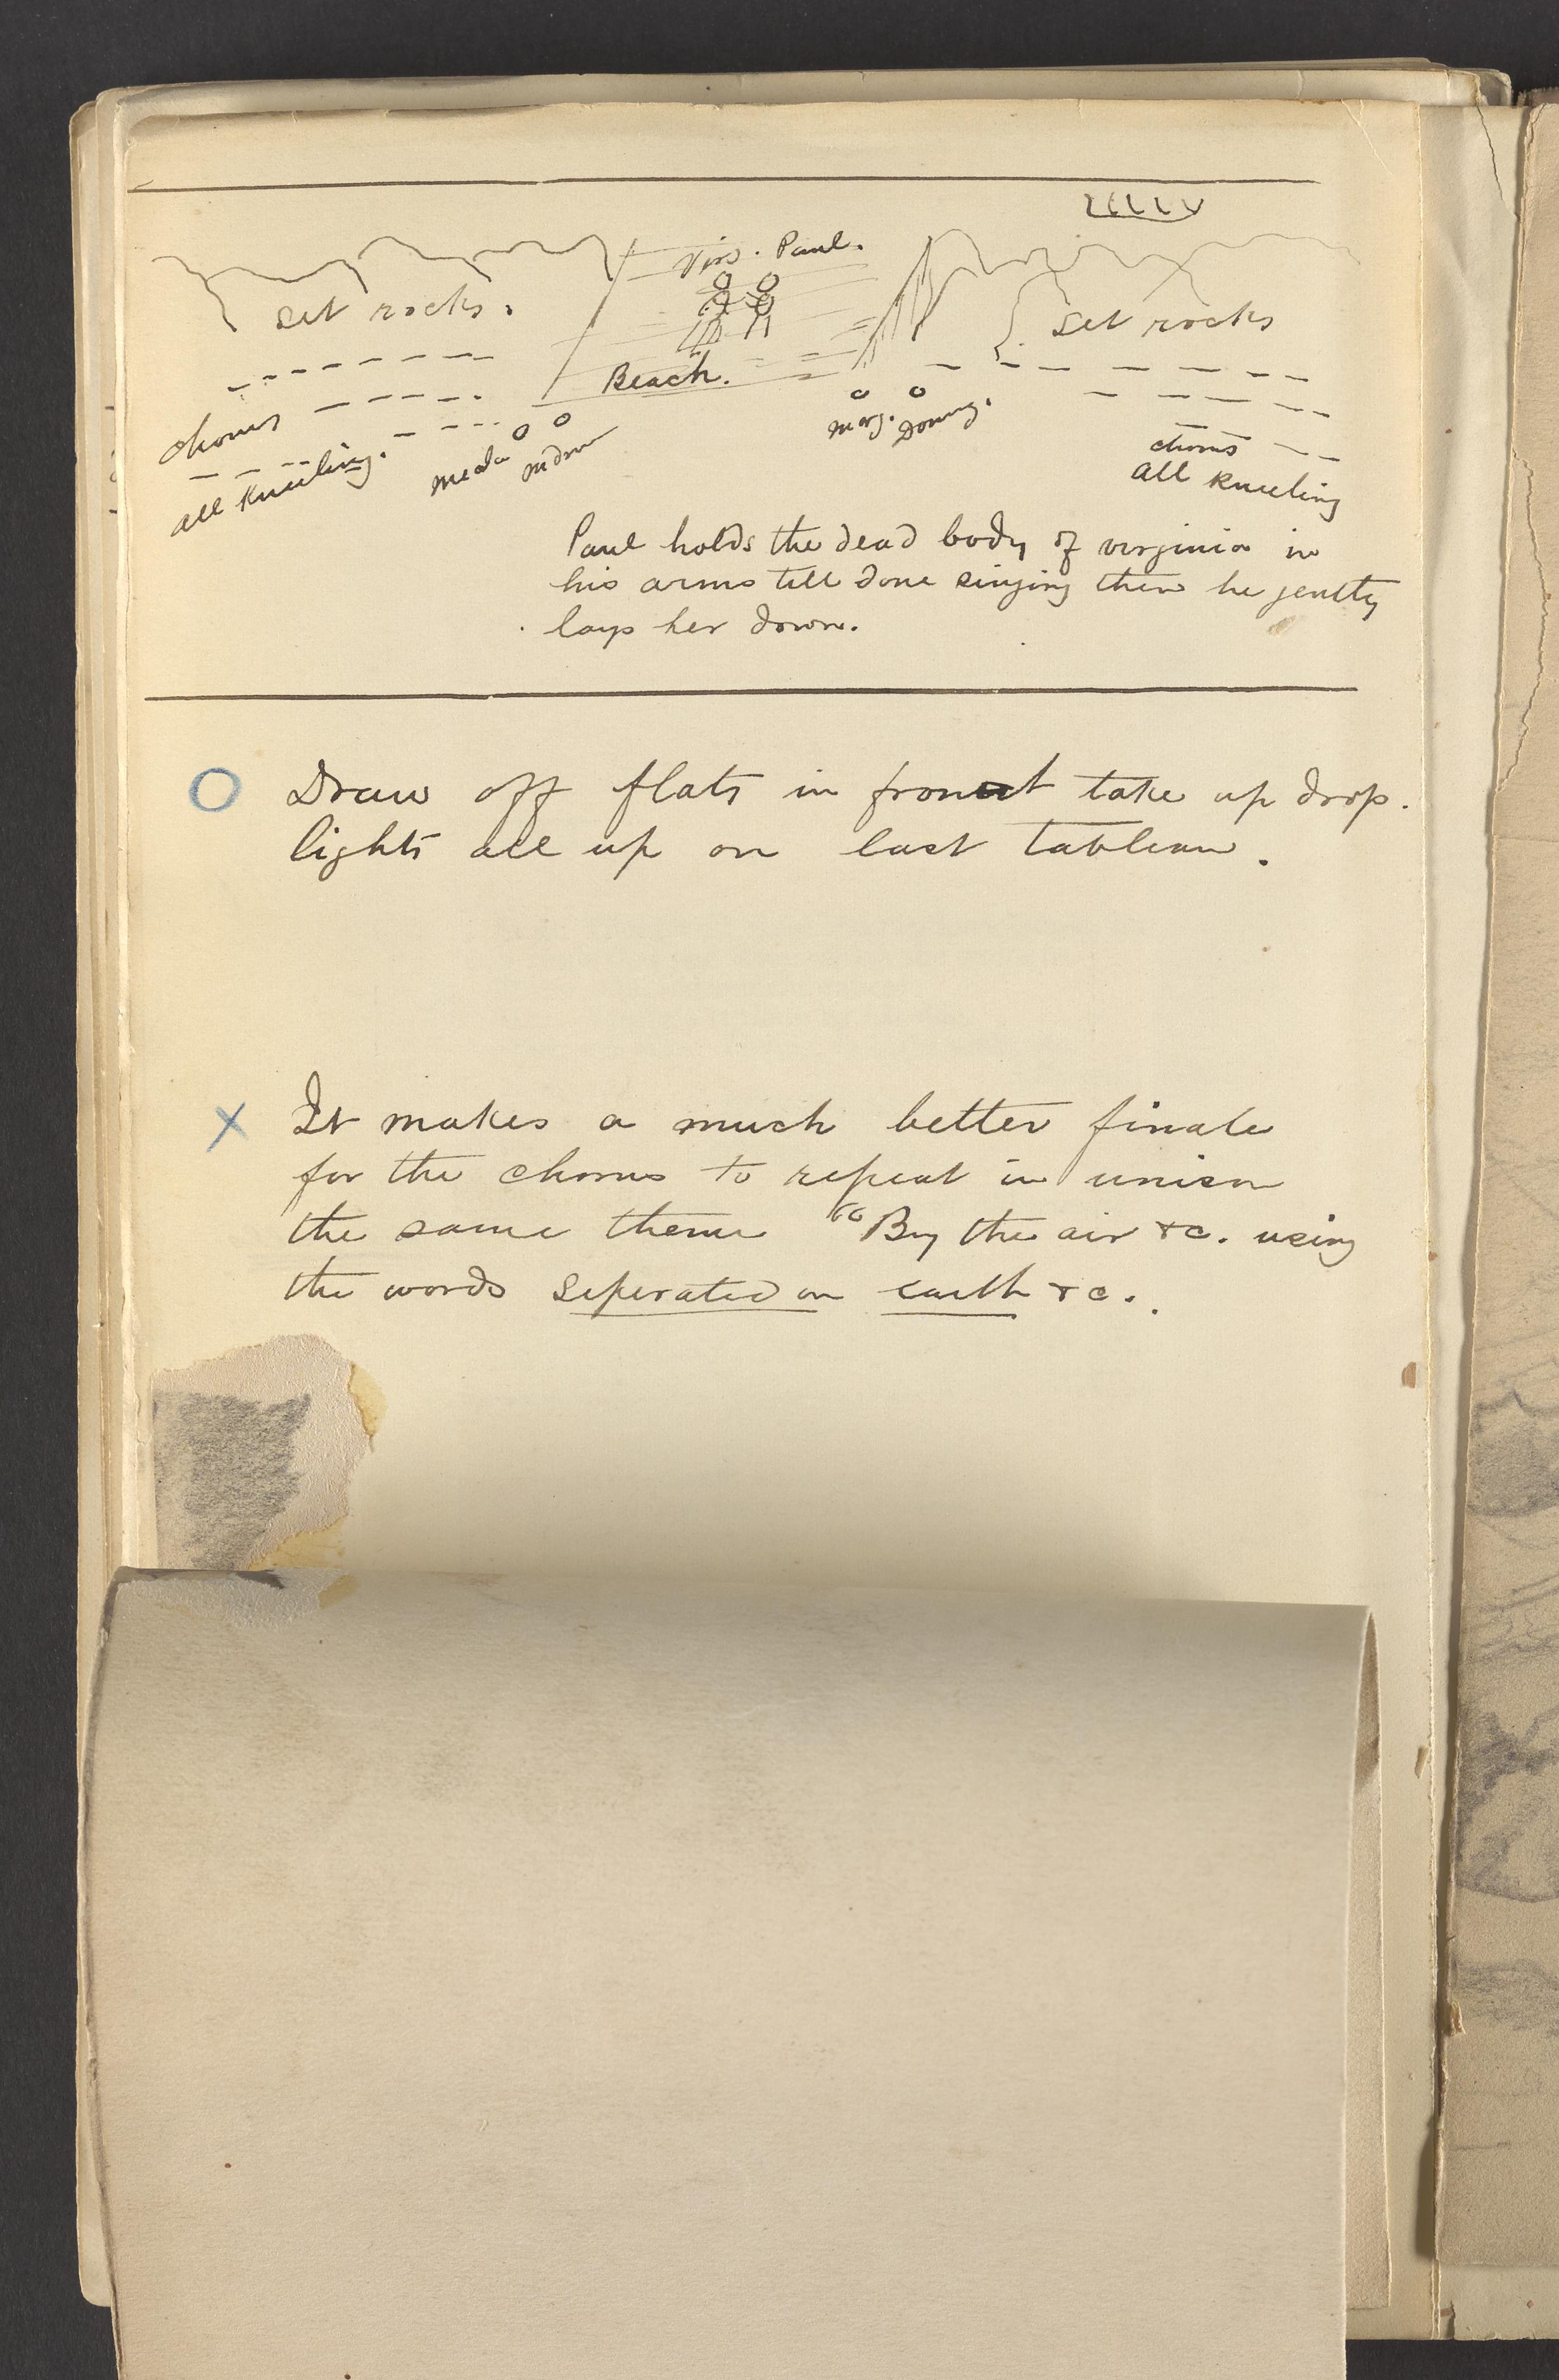 Vir. Paul.
set rocks.
set rocks
Beach.
chorus
all kneeling.
Meda
Marg. Doming.
chorus
all kneeling
Paul holds the dead body of virginia in
his arms till done singing then he gently
lays her down.
O Draw off flats in front take up drop.
lights all up on last tableau.
X It makes a much better finale
for the chorus to repeat in unison
the same theme "By the air &c. using
the words seperated on earth &c..